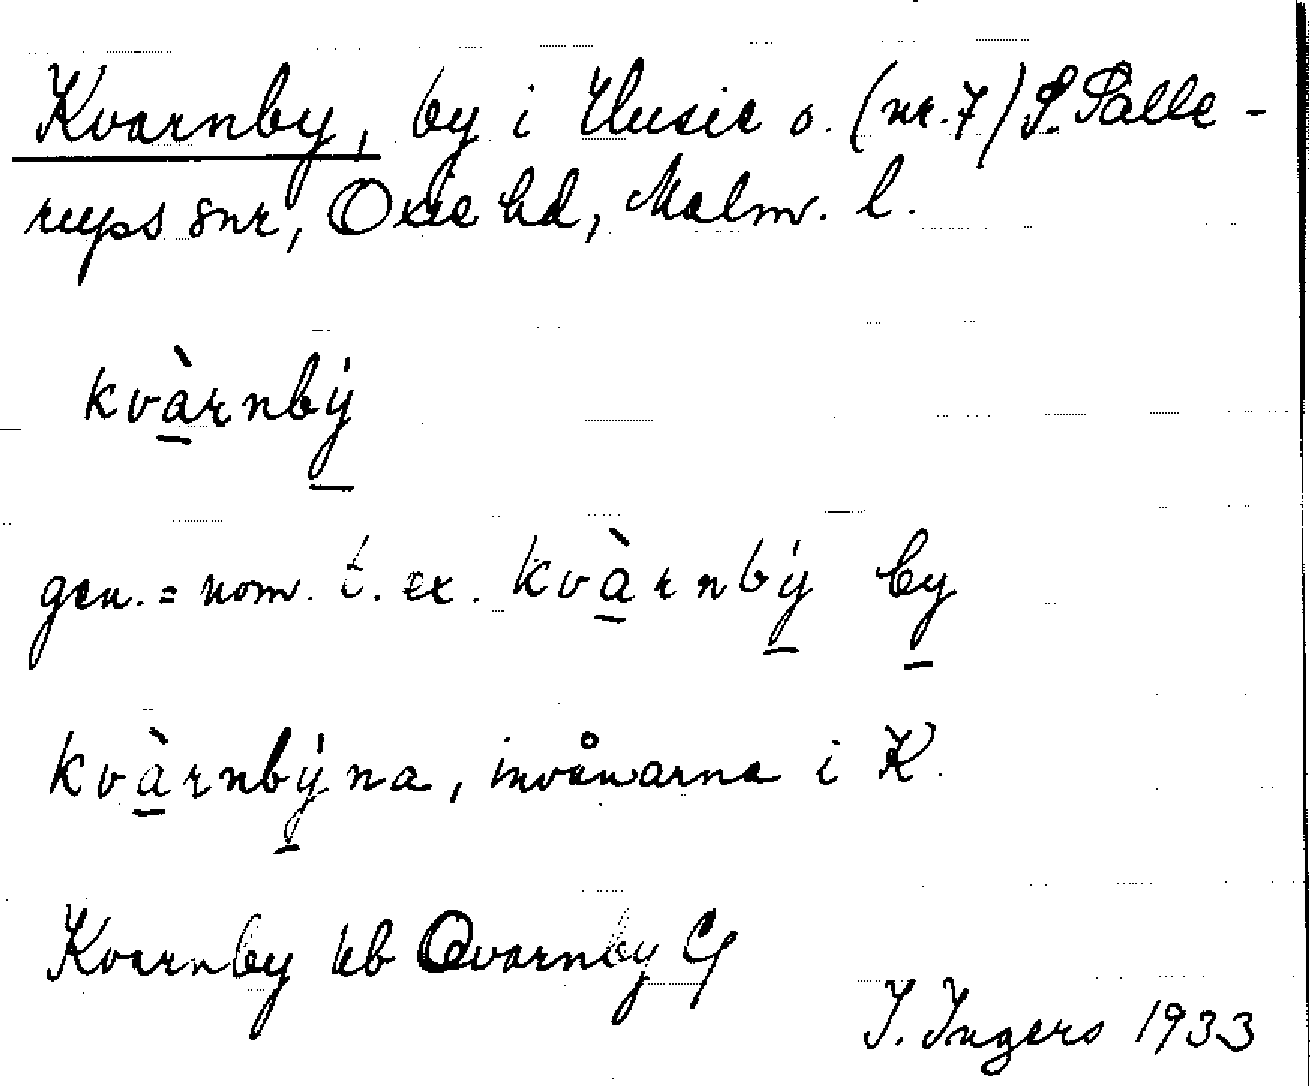 Kvarnby, by i Husie o. (nr. 7) S. Salle-
rups snr, Oxie hd, Malm. l.
kvàrnbý
gen. = nom. t. ex. kvàrnbý by
kvàrnbýna, invånarna i K.
Kvarnby kb Qvarnby G
I. Ingers 1933